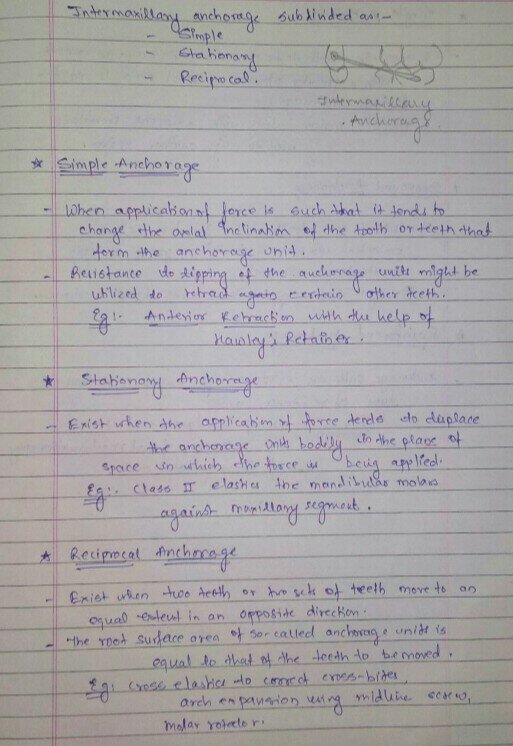 Intermaxillary anchorage subdivided as:-
- Simple
- Stationary
- Reciprocal.
Intermaxillary
Anchorage
* Simple Anchorage
- When application of force is such that it tends to
change the axial Inclination of the tooth or teeth that
form the anchorage unit.
- Resistance to tipping of the anchorage units might be
utilized to retract again certain other teeth.
Eg:. Anterior Retraction with the help of
Hawley's Retainer.
* Stationary Anchorage
- Exist when the application of force tends to displace
the anchorage units bodily in the plane of
space in which the force is being applied.
Eg:. Class II elastics the mandibular molars
against maxillary segment.
* Reciprocal Anchorage
- Exist when two teeth or two sets of teeth move to an
equal extent in an opposite direction.
- The root surface area of so-called anchorage units is
equal to that of the teeth to be moved.
Eg: cross elastics to correct cross-bites,
arch expansion using midline screw,
molar rotator.